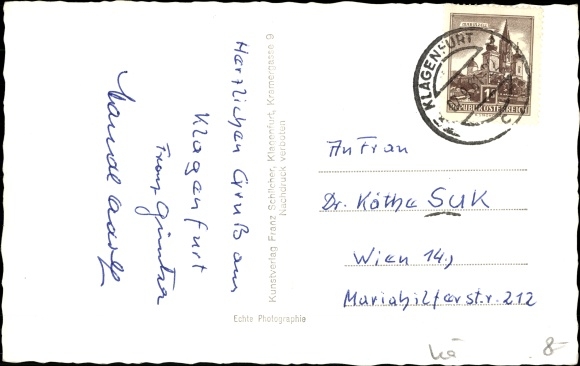 Herzlichen Gruß aus
Klagenfurt
Franz Günther
Kunstverlag Franz Schilcher, Klagenfurt, Kramergasse 9
Nachdruck verboten
Echte Photographie
KLAGENFURT
MARIAZELL
1S
REPUBLIK ÖSTERREICH
An Frau
Dr. Käthe SUK
Wien 14.,
Mariahilferstr. 212
8-